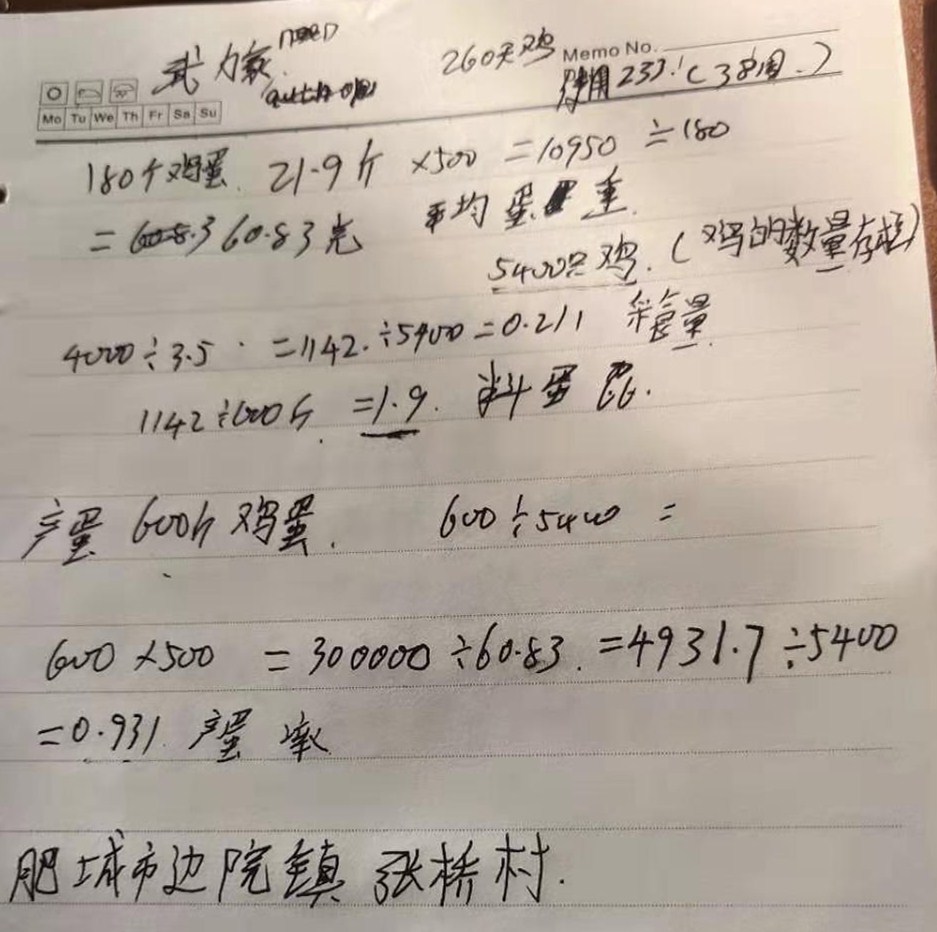 260天鸡 Memo No.
Mo Tu We Th Fr Sa Su
使用233.(38周.)
180个鸡蛋. 21.9斤 ×500 =10950 ÷180
= 60.83克 平均蛋重.
5400只鸡. (鸡的数量存栏)
4000÷3.5 =1142.÷5400=0.211 采食量
1142÷600斤. =1.9. 料蛋比.
产蛋 600斤鸡蛋. 600÷5400 =
600×500 = 300000÷60.83.=4931.7÷5400
=0.931 产蛋率
肥城市边院镇 张桥村.